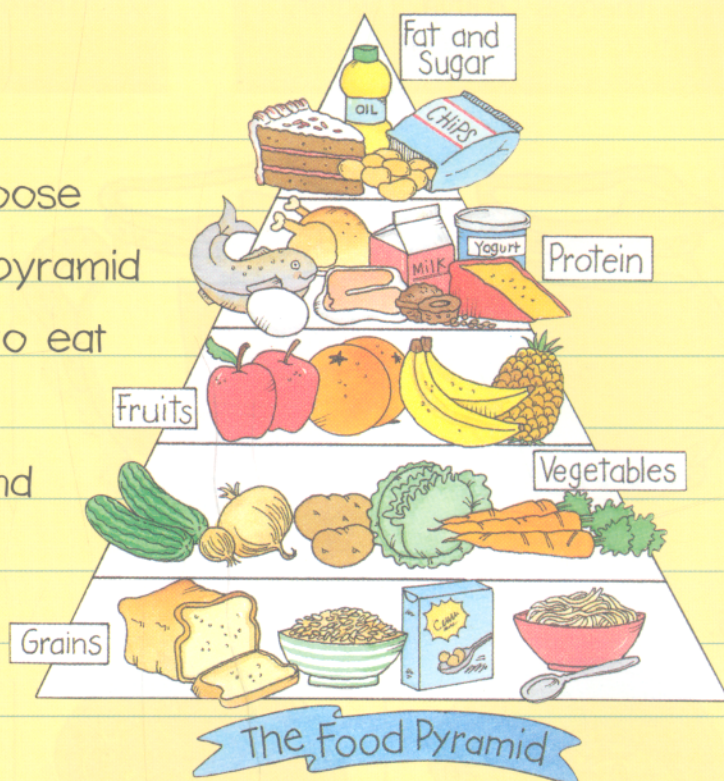 Fat and
Sugar
OIL
CHIPS
oose
pyramid
o eat
nd
Milk
Yogurt
Protein
Fruits
Vegetables
Grains
The Food Pyramid